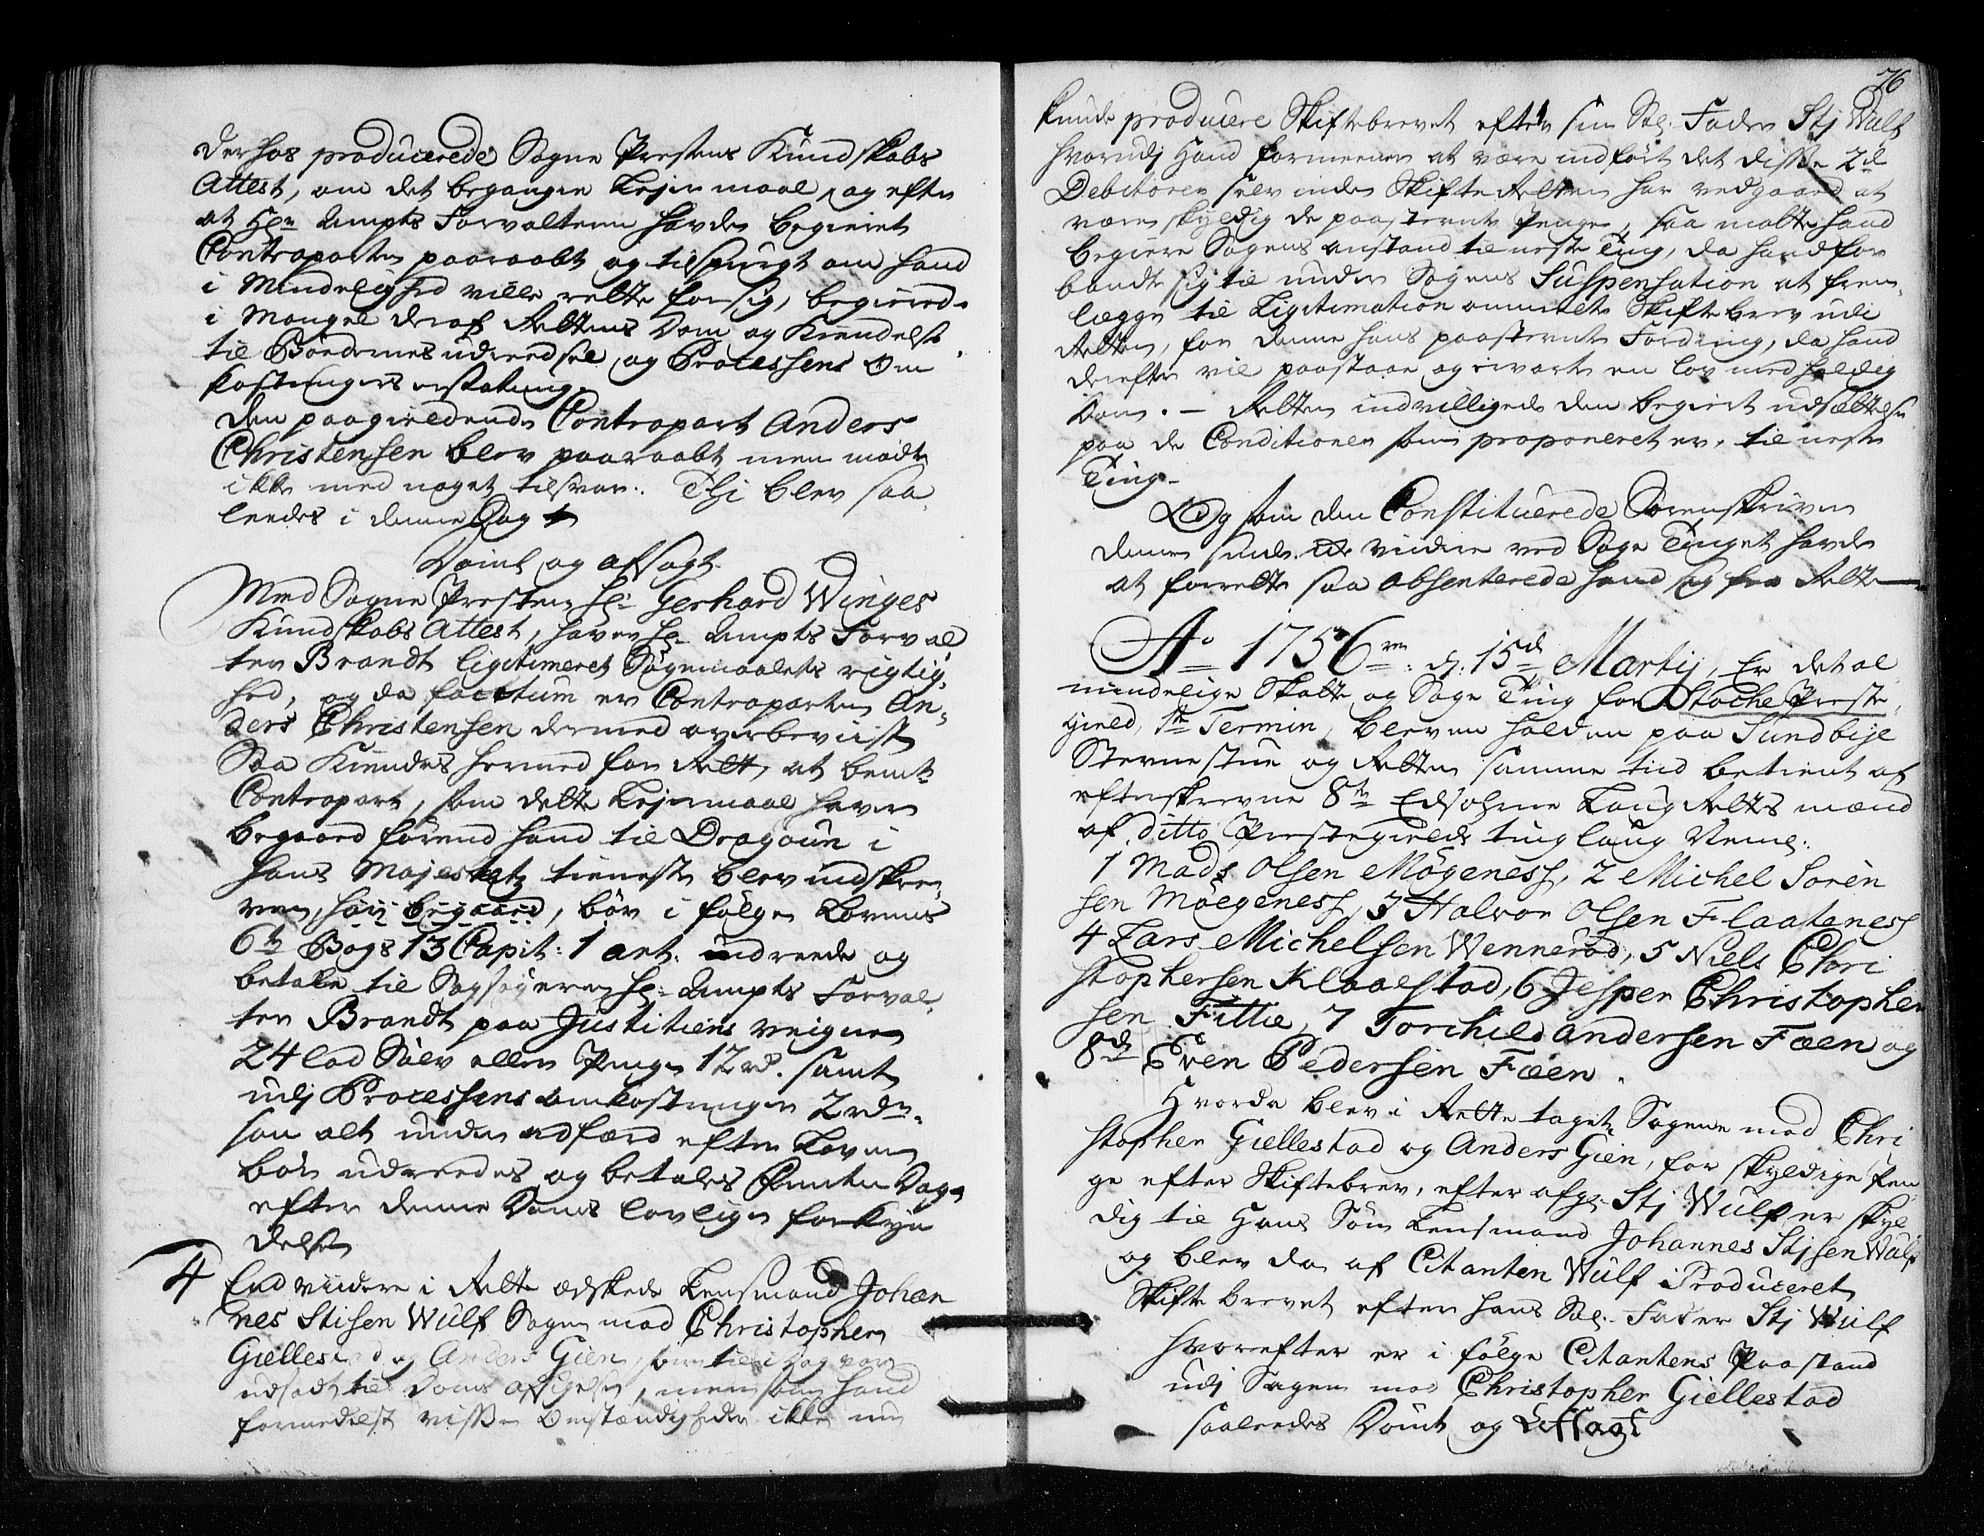 derhos producerede Sogne Prestens Kundskabs
Attest, om det begangne Lejermaal, og efter
at Hr. Ampts Forvalteren havde begieret
Contraparten paaraabt og tilspurgt om hand
i Mindelighed ville rette for sig, begierede
i Mangel deraf Rettens Dom og Kiendelse
til Bødernes udreedsel og Processens Om
kostningers erstatning.
Den paagieldende Contrapart Anders
Christensen blev paaraabt men mødte
ikke med noget tilsvar. Thi blev saa
leedes i denne Sag
Dømt og afsagt.
Med Sogne Presten Hr. Gerhard Winges
Kundskabs Attest, haver Hr. Ampts Forval
ter Brandt ligitimeret Søgemaalets rigtig
hed, og da factum er Contraparten An-
ders Christensen dermed overbeviist
Saa Kiendes hermed for Rett, at bemte
Contrapart, som dette Lejermaal haver
begaaed førend hand til Dragoun i
Hans Majestetz tieneste blev indskre
ven, bør i følge Lovens
6te Bogs 13 Capit: 1 art. udreede og
betale til Sagsøgeren Hr. Ampts Forval
ter Brandt paa Justitiens veigne
24 lod Sølv eller Penge 12 rd. samt
udj Processens omkostninger 2 rdr.
som alt under adfærd efter Loven
bør udreedes og betales femten Dage
efter denne Doms lovlige forkyn
delse
4 End viidere i Rette ædskede Lensmand Johan
nes Stisen Wulf Sagen mod Christopher
Giellestad og Anders Gien, som til i Dag var
udsadt til Doms afsigelse, men som hand
formedelst visse Omstændigheder ikke nu
76
kunde producere Skiftebrevet efter sin Sal. Fader Stj Wulf
hvorudj hand formeener at være indført det disse 2de
Debitorer selv inden Skifte Retten har vedgaaed at
være skyldig de paastevnte Penge, saa maatte hand
begiere Sagens anstand til neste Ting, da hand for
bandt sig til under Sagens Suspensation at frem
legge til Ligitimation ommelte Skiftebrev udi
Retten, for denne hans paastevnte Fordring, da hand
derefter vil paastaae og ervarte en lov medholdig
Dom. - Retten indvilligede den begierte udsættelse
paa de Conditioner som proponeret er, til neste
Ting.
Og som den Constituerede Sorenskriver
denne sinde ei viidere ved Sage Tinget havde
at forrette saa absenterede hand sig fra Retten
Ao 1756 d. 15de Martij, Er det al
mindelige Skatte og Sage Ting for Stoche Preste
gield, 1te Termin, bleven holden paa Sundbye
Stevnestue og Retten samme tiid betient af
efterskrevne 8te Edsohrne Laug Retts mænd
af ditto Prestegields tinglaug Neml.
1 Mads Olsen Møgeness, 2 Michel Sören
sen Møegeness, 3 Halvor Olsen Flaateness
4 Lars Michelsen Wennerød, 5 Niels Chri
stophersen Klaalstad, 6 Jesper Christopher
sen Fittie, 7 Torchild Andersen Fæen og
8de Even Pedersen Fæen.
Hvorda blev i Rette taget Sagene mod Chri
stopher Giellestad og Anders Gien, for skyldige Pen
ge efter Skiftebrev, efter afg. Stj Wulf er skyl
dig til Hans Søn Lensmand Johannes Stjsen Wulf
og blev da af Citanten Wulf Produceret
Skifte brevet efter hans Sal. Fader Stj Wulf
hvorefter er i følge Citantens Paastand
udj Sagen mod Christopher Giellestad
saaleedes Dømt og Afsagt